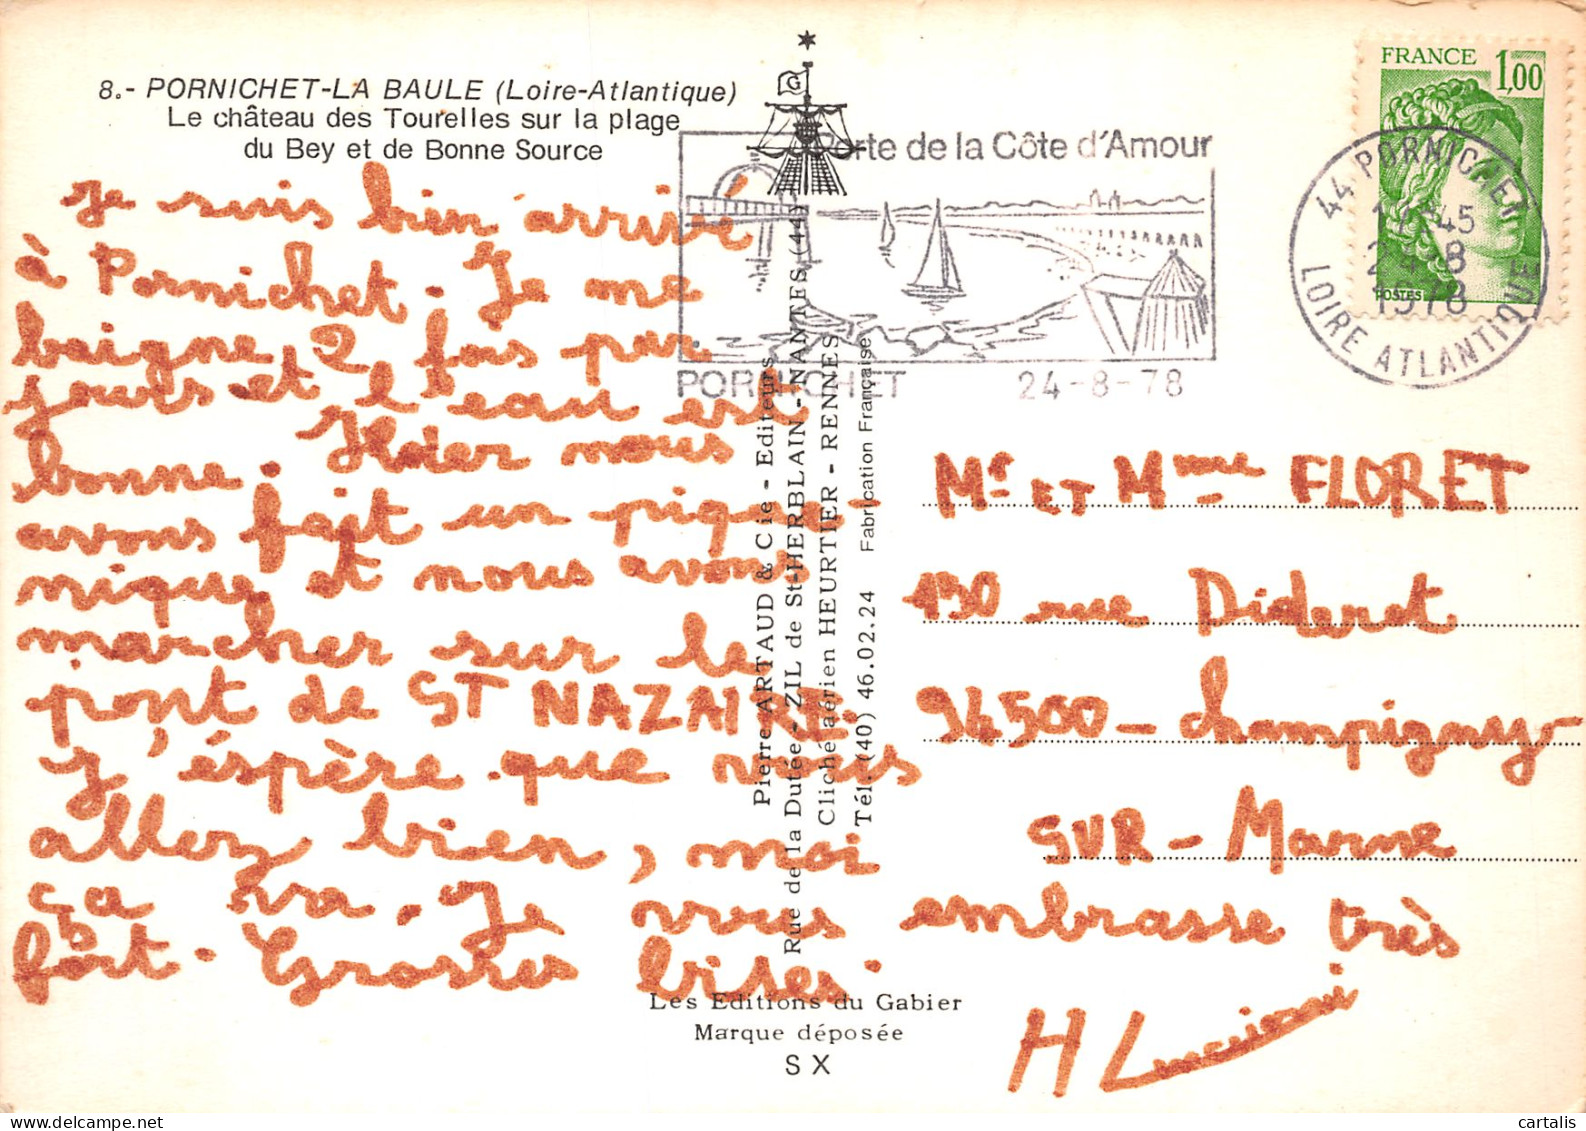 8.- PORNICHET-LA BAULE (Loire-Atlantique)
Le château des Tourelles sur la plage
du Bey et de Bonne Source
Porte de la Côte d'Amour
PORNICHET 24-8-78
FRANCE 1,00
POSTES
44 PORNICHET
45
24-8
1978
LOIRE ATLANTIQUE
G
je suis bien arrivé
à Pornichet. Je me
baigne, 2 fois par
jours et l'eau est
bonne. Hier nous
avons fait un pique-
nique, et nous avons
marcher sur le
pont de ST NAZAIRE.
J'éspère que vous
allez bien, moi
ça va. Je vous embrasse très
fort. Grosses bises
H Luciani
Mr ET Mme FLORET
130 rue Diderot
94500 - champigny-
SUR - Marne
Pierre ARTAUD & Cie - Editeurs
Rue de la Dutée - ZIL de St-HERBLAIN - NANTES (44)
Cliché aérien HEURTIER - RENNES
Tél. (40) 46.02.24 Fabrication Française
Les Editions du Gabier
Marque déposée
S X
cartalis